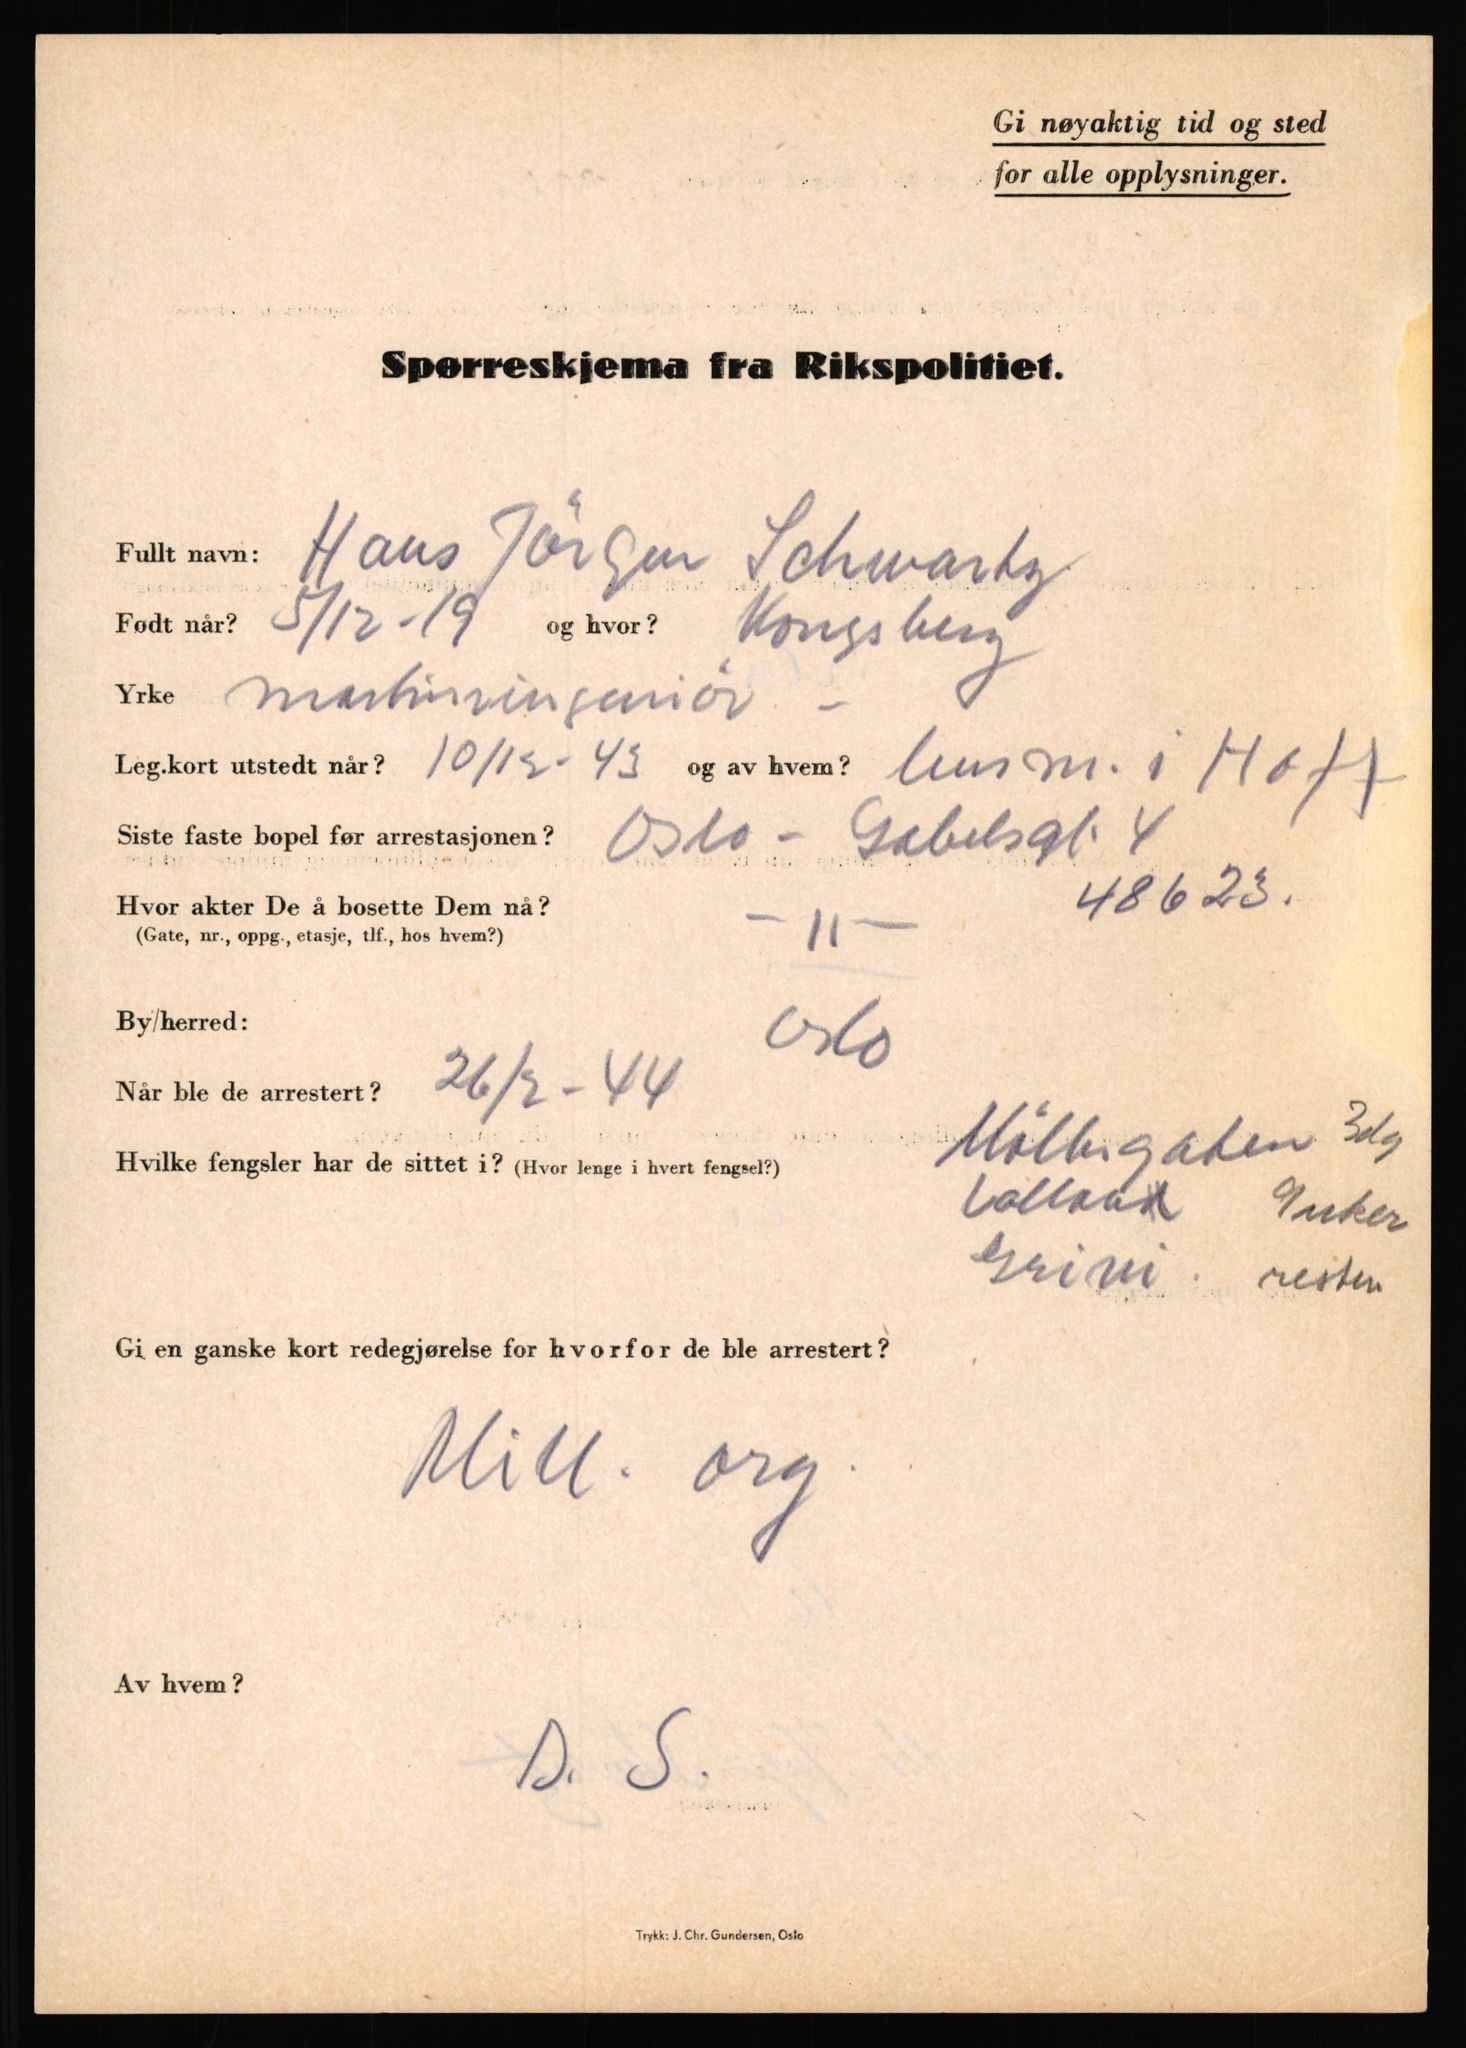 Gi nøyaktig tid og sted
for alle opplysninger.
Spørreskjema fra Rikspolitiet.
Fullt navn: Hans Jörgen Schwartz
Født når? 5/12-19 og hvor? Kongsberg
Yrke maskiningeniör -
Leg.kort utstedt når? 10/12-43 og av hvem? lensm. i Hoff
Siste faste bopel før arrestasjonen? Oslo - Gabelsgt. 4
48623.
Hvor akter De å bosette Dem nå? - 11 -
(Gate, nr., oppg., etasje, tlf., hos hvem?)
By/herred: Oslo
Når ble de arrestert? 26/2-44
Hvilke fengsler har de sittet i? (Hvor lenge i hvert fengsel?) Möllergaten 3dg
9uker
Grini. resten
Gi en ganske kort redegjørelse for hvorfor de ble arrestert?
Mill. org.
Av hvem?
D. S.
Trykk: J. Chr. Gundersen, Oslo